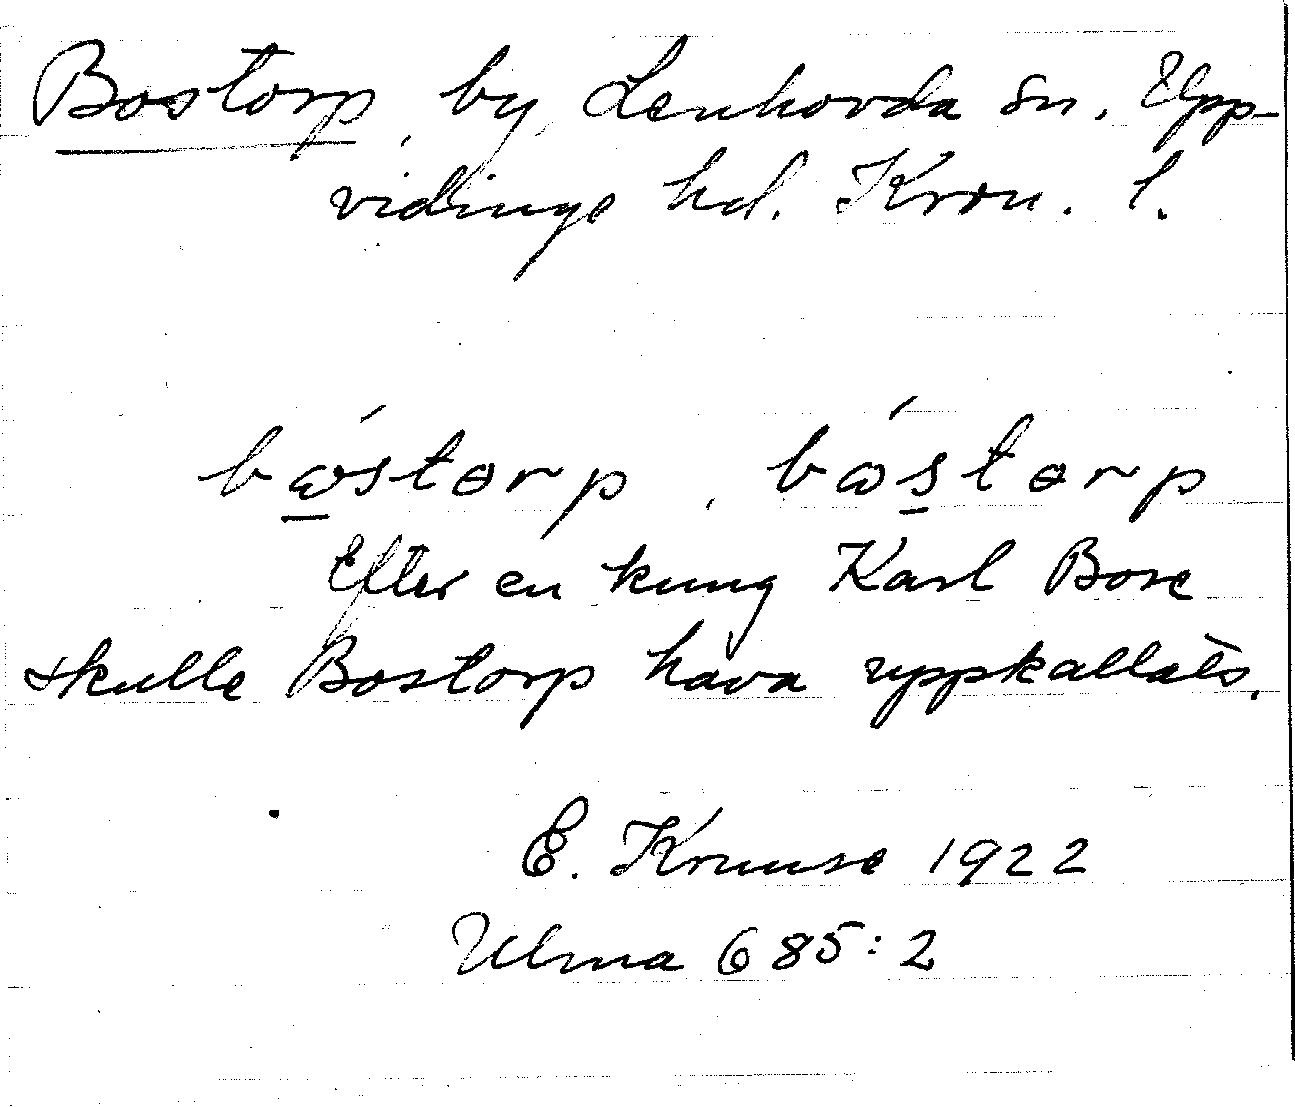 Bostorp, by, Lenhovda sn. Upp-
vidinge hd. Kron. l.
bώ̲stɵrp, bώs̲tɵrp
Efter en kung Karl Bose
skulle Bostorp hava uppkallats.
E. Kruuse 1922
Ulma 685:2